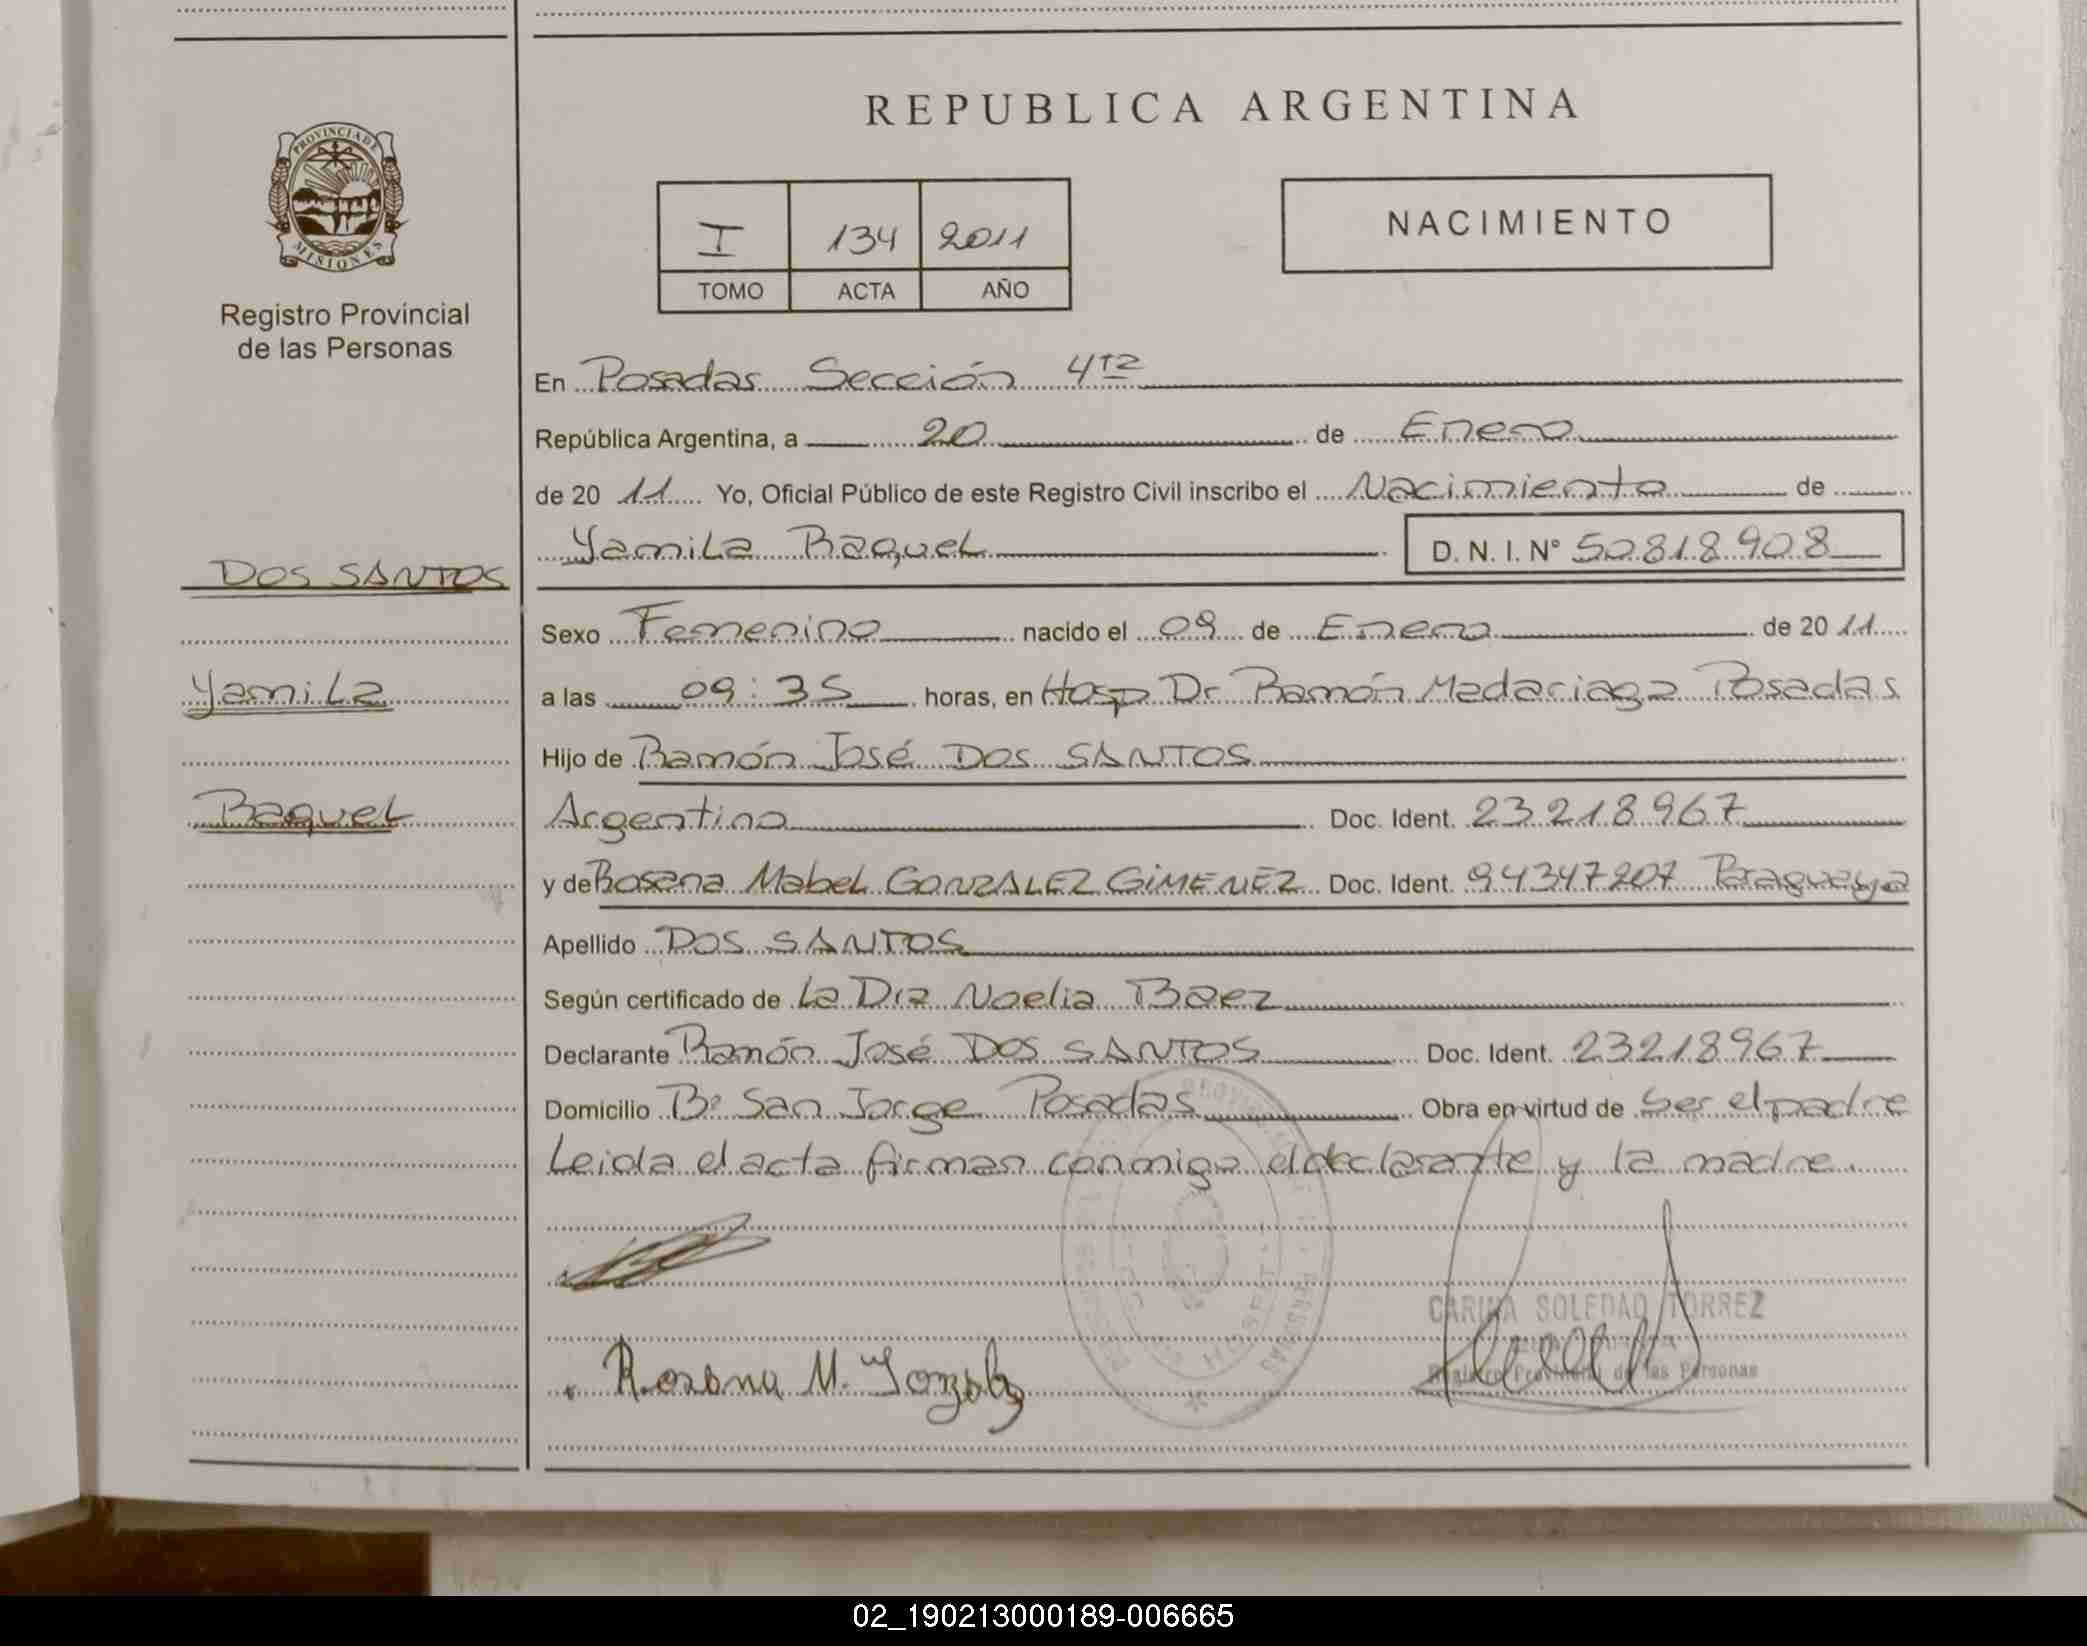 PROVINCIA DE
MISIONES
Registro Provincial
de las Personas
DOS SANTOS
Yamila
Raquel
REPUBLICA ARGENTINA
I 134 2011
TOMO ACTA AÑO
NACIMIENTO
En Posadas Sección 4ta
República Argentina, a 20 de Enero
de 20 11 Yo, Oficial Público de este Registro Civil inscribo el Nacimiento de
Yamila Raquel D. N. I. Nº 50818908
Sexo Femenino nacido el 09 de Enero de 20 11
a las 09:35 horas, en Hosp Dr Ramón Madariaga Posadas
Hijo de Ramón José DOS SANTOS
Argentino Doc. Ident. 23218967
y de Rosana Mabel GONZALEZ GIMENEZ Doc. Ident. 94347207 Paraguaya
Apellido DOS SANTOS
Según certificado de La Dra Noelia Baez
Declarante Ramón José DOS SANTOS Doc. Ident. 23218967
Domicilio Bº San Jorge Posadas Obra en virtud de ser el padre
Leida el acta firman conmigo el declarante y la madre
CARINA SOLEDAD TORREZ
Registro Provincial de las Personas
Rosana M. Gonzalez
02_190213000189-006665